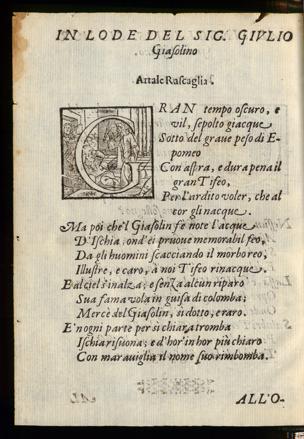 IN LODE DEL SIG. GIVLIO
Giasolino
Artale Ruscaglia.
GRAN tempo oscuro, e
vil, sepolto giacque
Sotto del graue peso di E-
pomeo
Con aspra, e dura pena il
gran Tifeo,
Per l'ardito voler, che al
cor gli nacque.
Ma poi che'l Giasolin fe note l'acque
D'Ischia, ond'ei pruoue memorabil feo,
Da gli huomini scacciando il morbo reo,
Illustre, e caro, à noi Tifeo rinacque.
E al ciel s'inalza; e senza alcun riparo
Sua fama vola in guisa di colomba;
Mercè del Giasolin, sì dotto, e raro.
E'n ogni parte per sì chiara tromba
Ischia risuona; e d'hor in hor più chiaro
Con marauiglia il nome suo rimbomba.
ALL'O-